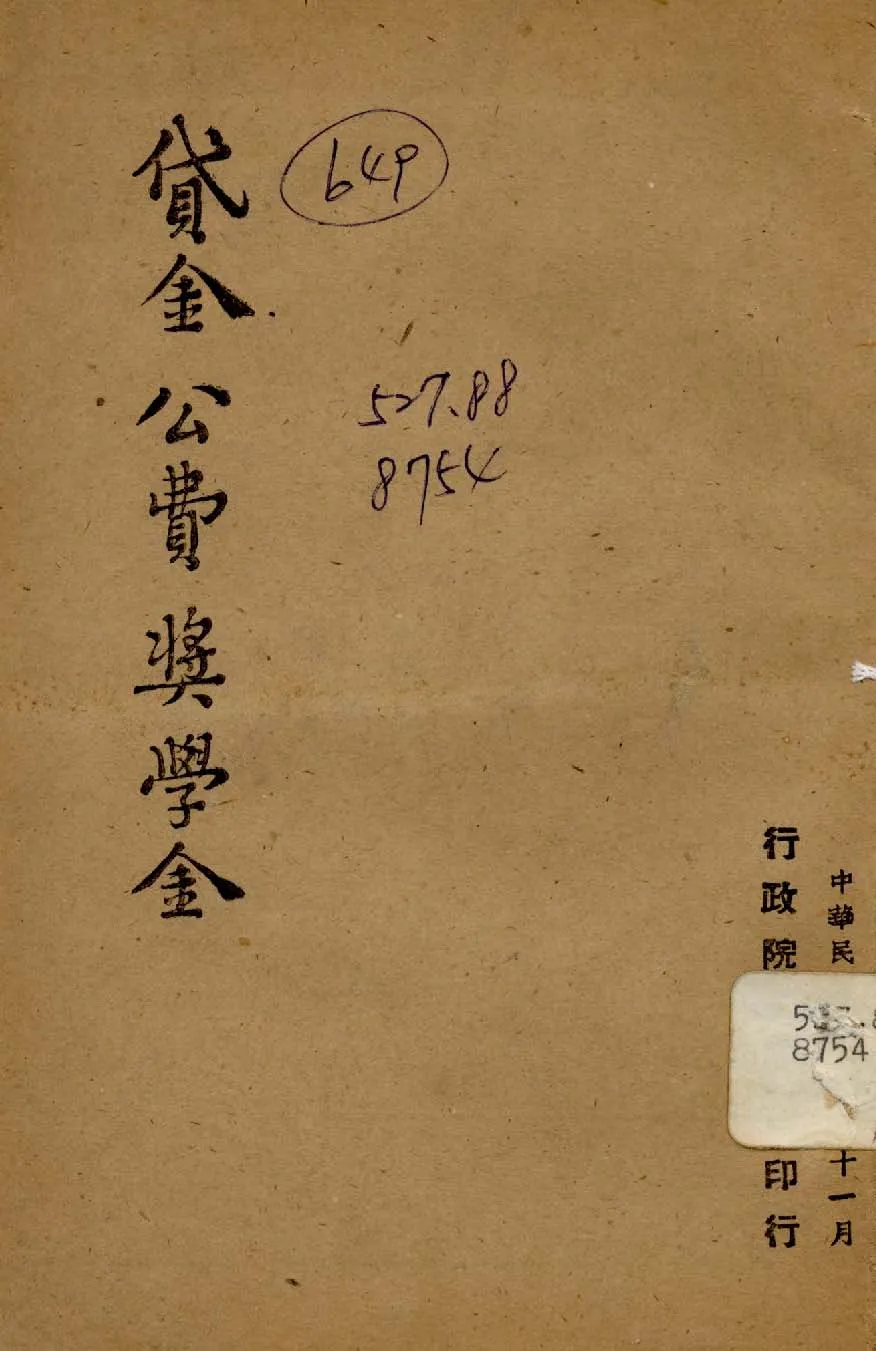 中華民
十一月
行政院
印行
649
527.88
8754
貸金 公費 獎學金
8754